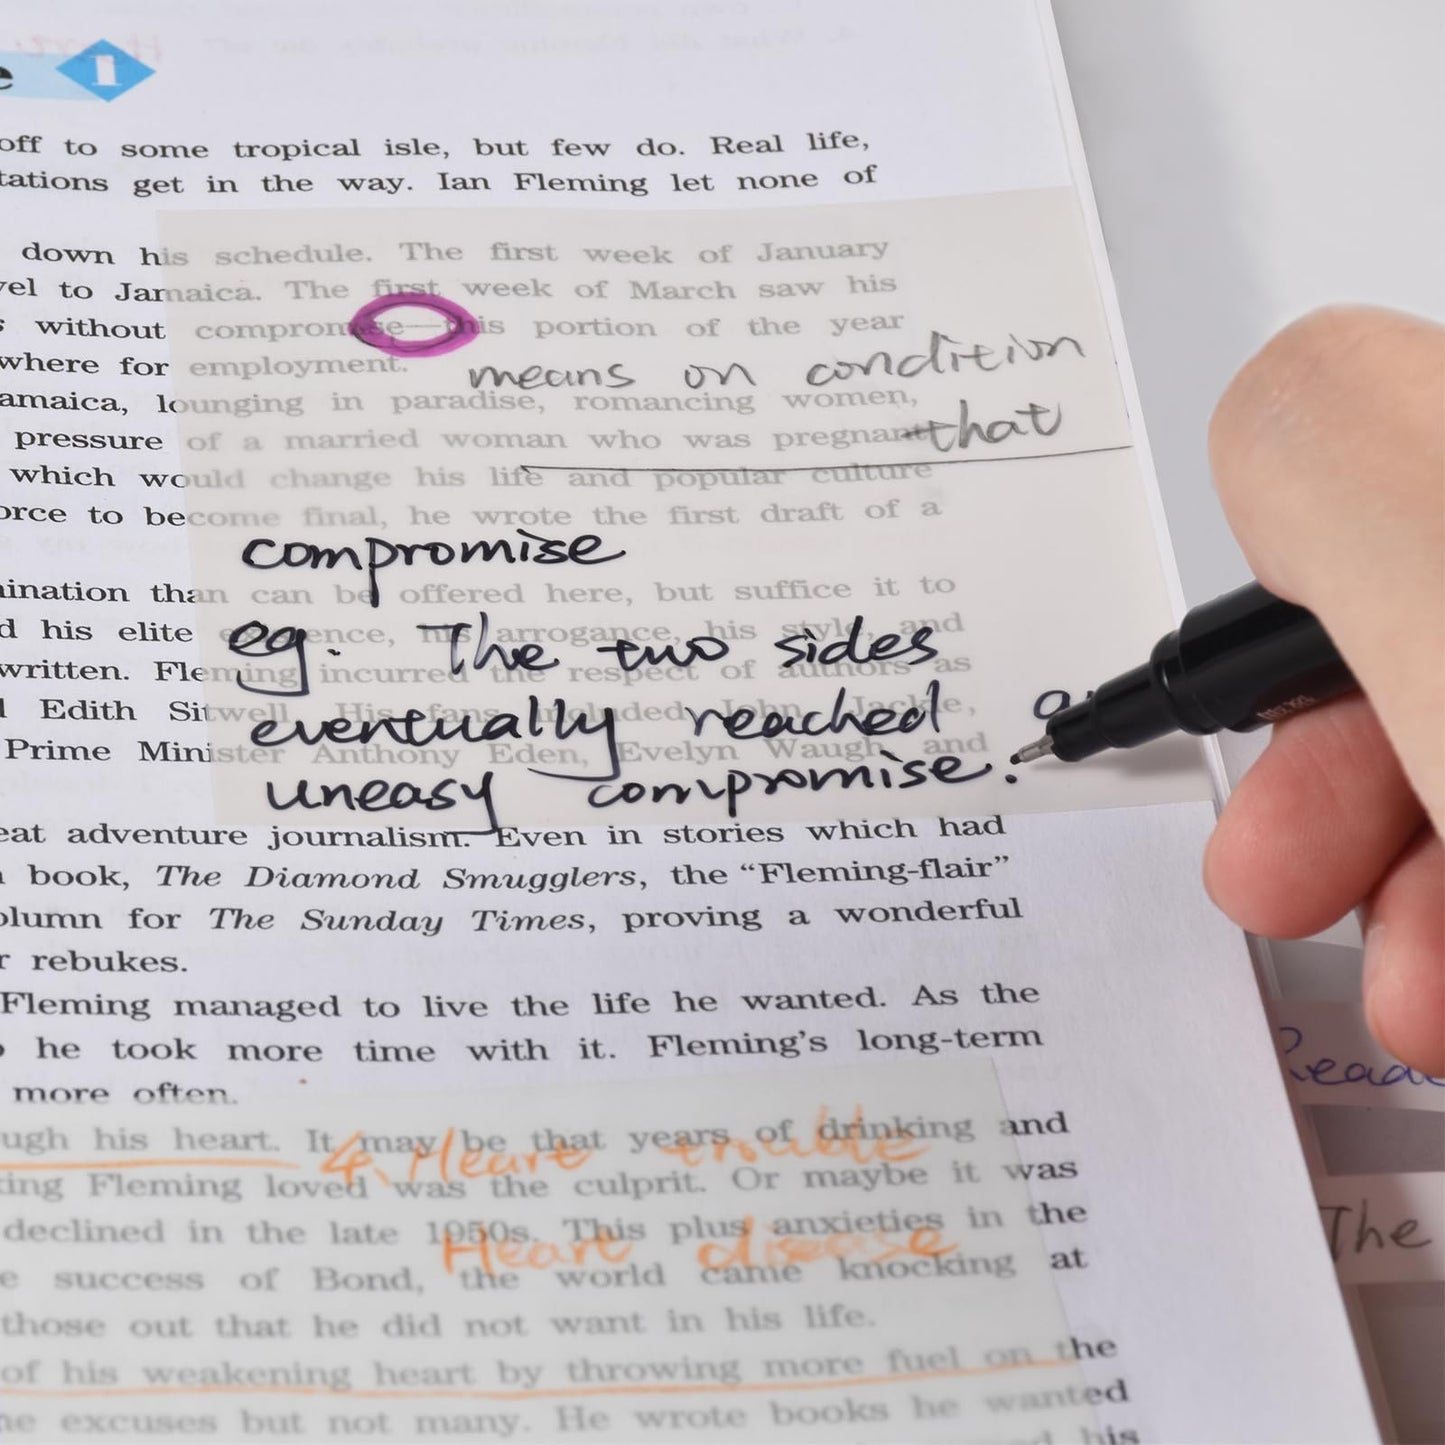 1
off to some tropical isle, but few do. Real life,
get in the way. Ian Fleming let none of
down his schedule. The first week of January
to Jamaica. The first week of March saw his
without compromise—this portion of the year
where for employment.
means on condition
lounging in paradise, romancing women,
that
pressure of a married woman who was pregnant
which would change his life and popular culture
to become final, he wrote the first draft of a
compromise
than can be offered here, but suffice it to
his elite his arrogance, his style, and
eg. The two sides
written. Fleming incurred the respect of authors as
Edith Sitwell. His fans included John Jackle,
eventually reached
Prime Minister Anthony Eden, Evelyn Waugh and
uneasy compromise.
adventure journalism. Even in stories which had
book, The Diamond Smugglers, the “Fleming-flair”
for The Sunday Times, proving a wonderful
rebukes.
Fleming managed to live the life he wanted. As the
he took more time with it. Fleming's long-term
more often.
Read
his heart. It may be that years of drinking and
4. Heart trouble
Fleming loved was the culprit. Or maybe it was
declined in the late 1950s. This plus anxieties in the
The
Heart disease
success of Bond, the world came knocking at
those out that he did not want in his life.
of his weakening heart by throwing more fuel on the
excuses but not many. He wrote books he wanted
his